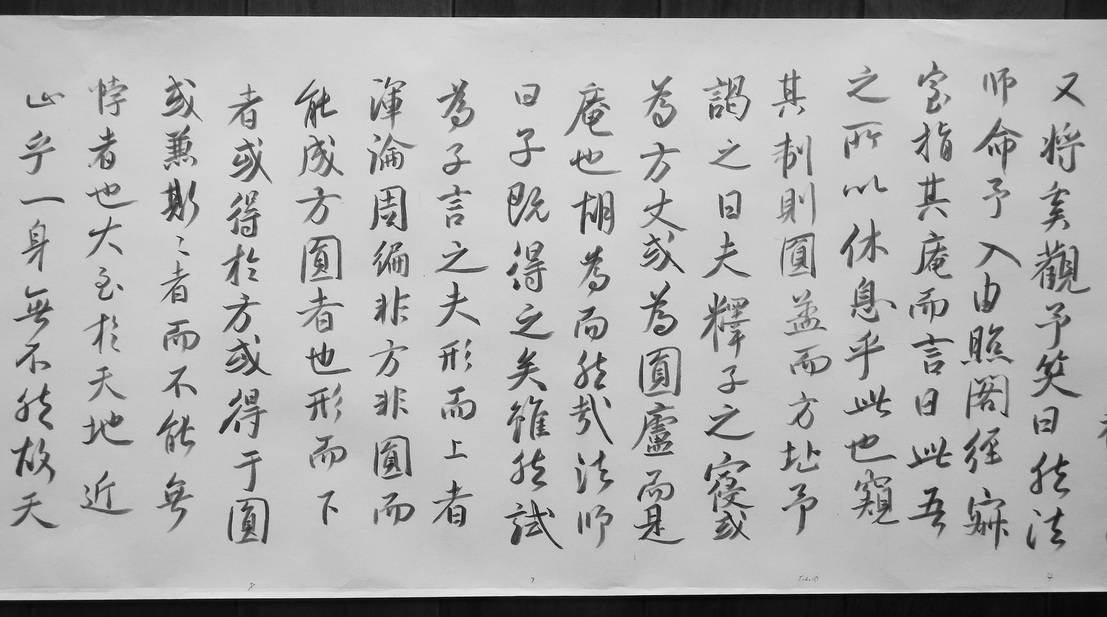 又將奚觀乎笑曰然法
師命予入由照閣經寂
室指其庵而言曰此吾
之所以休息乎此也窺
其制則圓蓋而方址予
謁之曰夫釋子之寢或
為方丈或為圓廬而是
庵也胡為而然哉法師
曰子既得之矣雖然試
為子言之夫形而上者
渾淪周徧非方非圓而
能成方圓者也形而下
者或得於方或得于圓
或兼斯二者而不能無
悖者也大至於天地近
止乎一身無不然故天